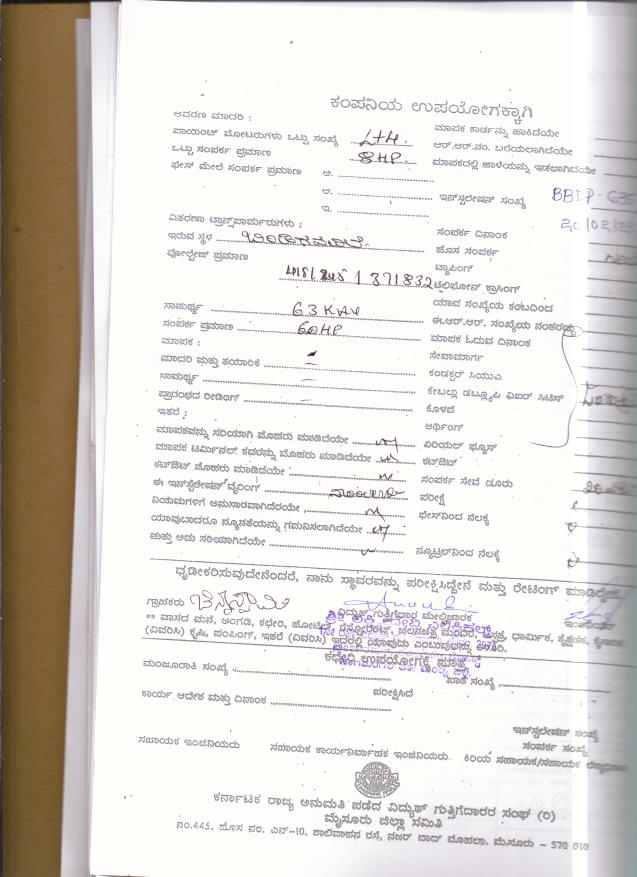 ಕಂಪನಿಯ ಉಪಯೋಗಕ್ಕಾಗಿ
ಆವರಣ ಮಾದರಿ : ಮಾಪಕ ಕಾರ್ಡನ್ನು ಹಾಕಿದೆಯೇ
ಪಾಯಿಂಟ್ ಮೋಟರುಗಳು ಒಟ್ಟು ಸಂಖ್ಯೆ ಆರ್.ಆರ್.ನಂ. ಬರೆಯಲಾಗಿದೆಯೇ
ಒಟ್ಟು ಸಂಪರ್ಕ ಪ್ರಮಾಣ 8HP ಮಾಪಕದಲ್ಲಿ ಹಾಳೆಯನ್ನು ಇಡಲಾಗಿದೆಯೇ
ಫೇಸ್ ಮೇಲೆ ಸಂಪರ್ಕ ಪ್ರಮಾಣ ಅ.
ಆ. ಇನ್‌ಸ್ಟಲೇಷನ್ ಸಂಖ್ಯೆ
ಇ.
ವಿತರಣಾ ಟ್ರಾನ್ಸ್‌ಫಾರ್ಮರುಗಳು : ಸಂಪರ್ಕ ದಿನಾಂಕ
ಇರುವ ಸ್ಥಳ ಹೊಸ ಸಂಪರ್ಕ
ವೋಲ್ಟೇಜ್ ಪ್ರಮಾಣ ಟ್ಯಾಪಿಂಗ್
371832 ಟೆಲಿಫೋನ್ ಕ್ರಾಸಿಂಗ್
ಯಾವ ಸಂಖ್ಯೆಯ ಕಂಬದಿಂದ
ಸಾಮರ್ಥ್ಯ 63 KAV ಈ.ಆರ್.ಆರ್. ಸಂಖ್ಯೆಯ ನಂತರದ್ದು
ಸಂಪರ್ಕ ಪ್ರಮಾಣ 60HP ಮಾಪಕ ಓದುವ ದಿನಾಂಕ
ಮಾಪಕ : ಸೇವಾಮಾರ್ಗ
ಮಾದರಿ ಮತ್ತು ತಯಾರಿಕೆ ಕಂಡಕ್ಟರ್ ಸಿಯುಎ
ಸಾಮರ್ಥ್ಯ ಕೇಬಲ್ಲು ಡಬ್ಲ್ಯೂಪಿ ವಿಐಆರ್ ಸಿಟಿಸ್
ಪ್ರಾರಂಭದ ರೀಡಿಂಗ್ ಕೊಳವೆ
ಇತರೆ : ಅರ್ಥಿಂಗ್
ಮಾಪಕವನ್ನು ಸರಿಯಾಗಿ ಮೊಹರು ಮಾಡಿದೆಯೇ ಏರಿಯಲ್ ಫ್ಯೂಸ್
ಮಾಪಕ ಟರ್ಮಿನಲ್ ಕವರನ್ನು ಮೊಹರು ಮಾಡಿದೆಯೇ ಕಟ್‌ಔಟ್
ಕಟ್‌ಔಟ್ ಮೊಹರು ಮಾಡಿದೆಯೇ ಸಂಪರ್ಕ ಸೇವೆ ದೂರು
ಈ ಇನ್‌ಸ್ಟಲೇಷನ್ ವೈರಿಂಗ್ ಪರೀಕ್ಷೆ
ನಿಯಮಗಳಿಗೆ ಅನುಸಾರವಾಗಿದೆಯೇ ಫೇಸ್‌ನಿಂದ ನೆಲಕ್ಕೆ
ಯಾವುದಾದರೂ ನ್ಯೂನತೆಯನ್ನು ಗಮನಿಸಲಾಗಿದೆಯೇ
ಮತ್ತು ಅದು ಸರಿಯಾಗಿದೆಯೇ ನ್ಯೂಟ್ರಲ್‌ನಿಂದ ನೆಲಕ್ಕೆ
ಧೃಡೀಕರಿಸುವುದೇನೆಂದರೆ, ನಾನು ಸ್ಥಾವರವನ್ನು ಪರೀಕ್ಷಿಸಿದ್ದೇನೆ ಮತ್ತು ರೇಟಿಂಗ್
ಗ್ರಾಹಕರು ವಿದ್ಯುತ್ ಗುತ್ತಿಗೆದಾರ ಮೇಲ್ವಿಚಾರಕ ಇಂಜಿನಿಯರ್
** ವಾಸದ ಮನೆ, ಅಂಗಡಿ, ಕಛೇರಿ, ಹೋಟೆಲ್, ರೆಸ್ಟೋರೆಂಟ್, ಚಲನಚಿತ್ರ ಮಂದಿರ, ಧಾರ್ಮಿಕ, ಶೈಕ್ಷಣಿಕ,
(ವಿವರಿಸಿ) ಕೃಷಿ, ಪಂಪಿಂಗ್, ಇತರೆ (ವಿವರಿಸಿ) ಇದರಲ್ಲಿ ಯಾವುದು ಎಂಬುವುದನ್ನು ತಿಳಿಸಿರಿ.
ಕಛೇರಿ ಉಪಯೋಗಕ್ಕೆ ಮಾತ್ರ
ಮಂಜೂರಾತಿ ಸಂಖ್ಯೆ ಖಾತೆ ಸಂಖ್ಯೆ
ಕಾರ್ಯ ಆದೇಶ ಮತ್ತು ದಿನಾಂಕ ಪರೀಕ್ಷಿಸಿದೆ
ಇನ್‌ಸ್ಟಲೇಷನ್ ಸಂಖ್ಯೆ
ಸಂಪರ್ಕ ಸಂಖ್ಯೆ
ಸಹಾಯಕ ಇಂಜಿನಿಯರು ಸಹಾಯಕ ಕಾರ್ಯನಿರ್ವಾಹಕ ಇಂಜಿನಿಯರು. ಕಿರಿಯ ಸಹಾಯಕ/ಸಹಾಯಕ
ಕರ್ನಾಟಕ ರಾಜ್ಯ ಅನುಮತಿ ಪಡೆದ ವಿದ್ಯುತ್ ಗುತ್ತಿಗೆದಾರರ ಸಂಘ (ರಿ)
ಮೈಸೂರು ಜಿಲ್ಲಾ ಸಮಿತಿ
ನಂ.445, ಹೊಸ ನಂ. ಎನ್-10, ಶಾಲಿವಾಹನ ರಸ್ತೆ, ನಜರ್ ಬಾದ್ ಮೊಹಲಾ, ಮೈಸೂರು - 570 010